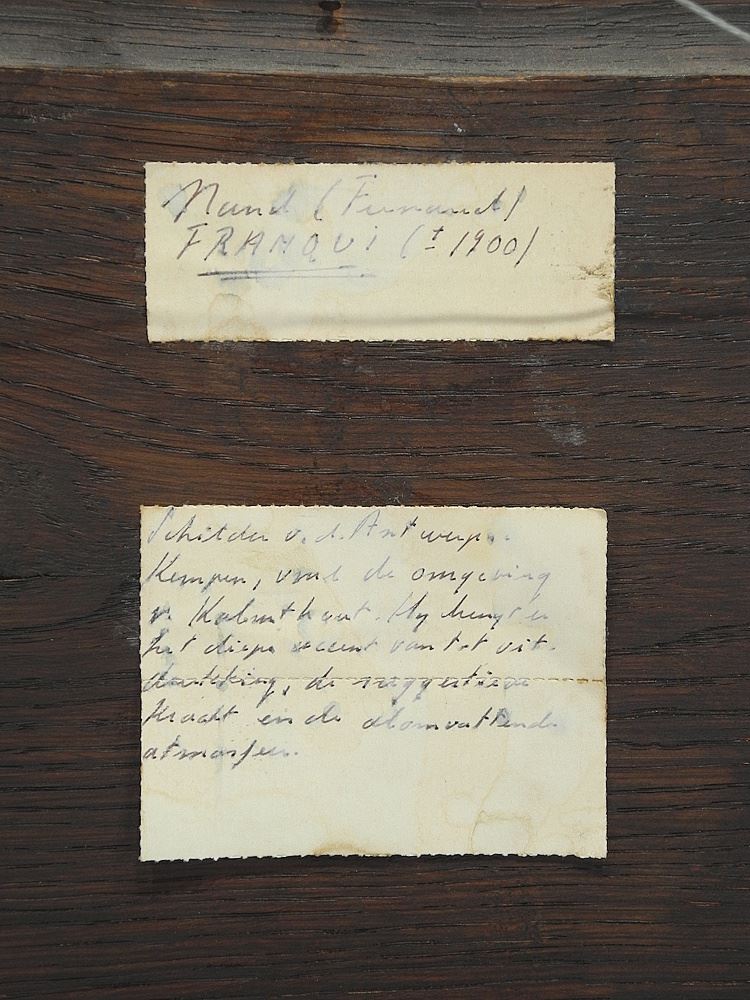 Nand (Fernand)
FRANQUI (± 1900)
Schilder v. d. Antwerpse
Kempen, vnl de omgeving
v. Kalmthout. Hy brengt er
het diepe accent van tot uit-
drukking, de suggestieve
kracht en de alomvattende
atmosfeer.